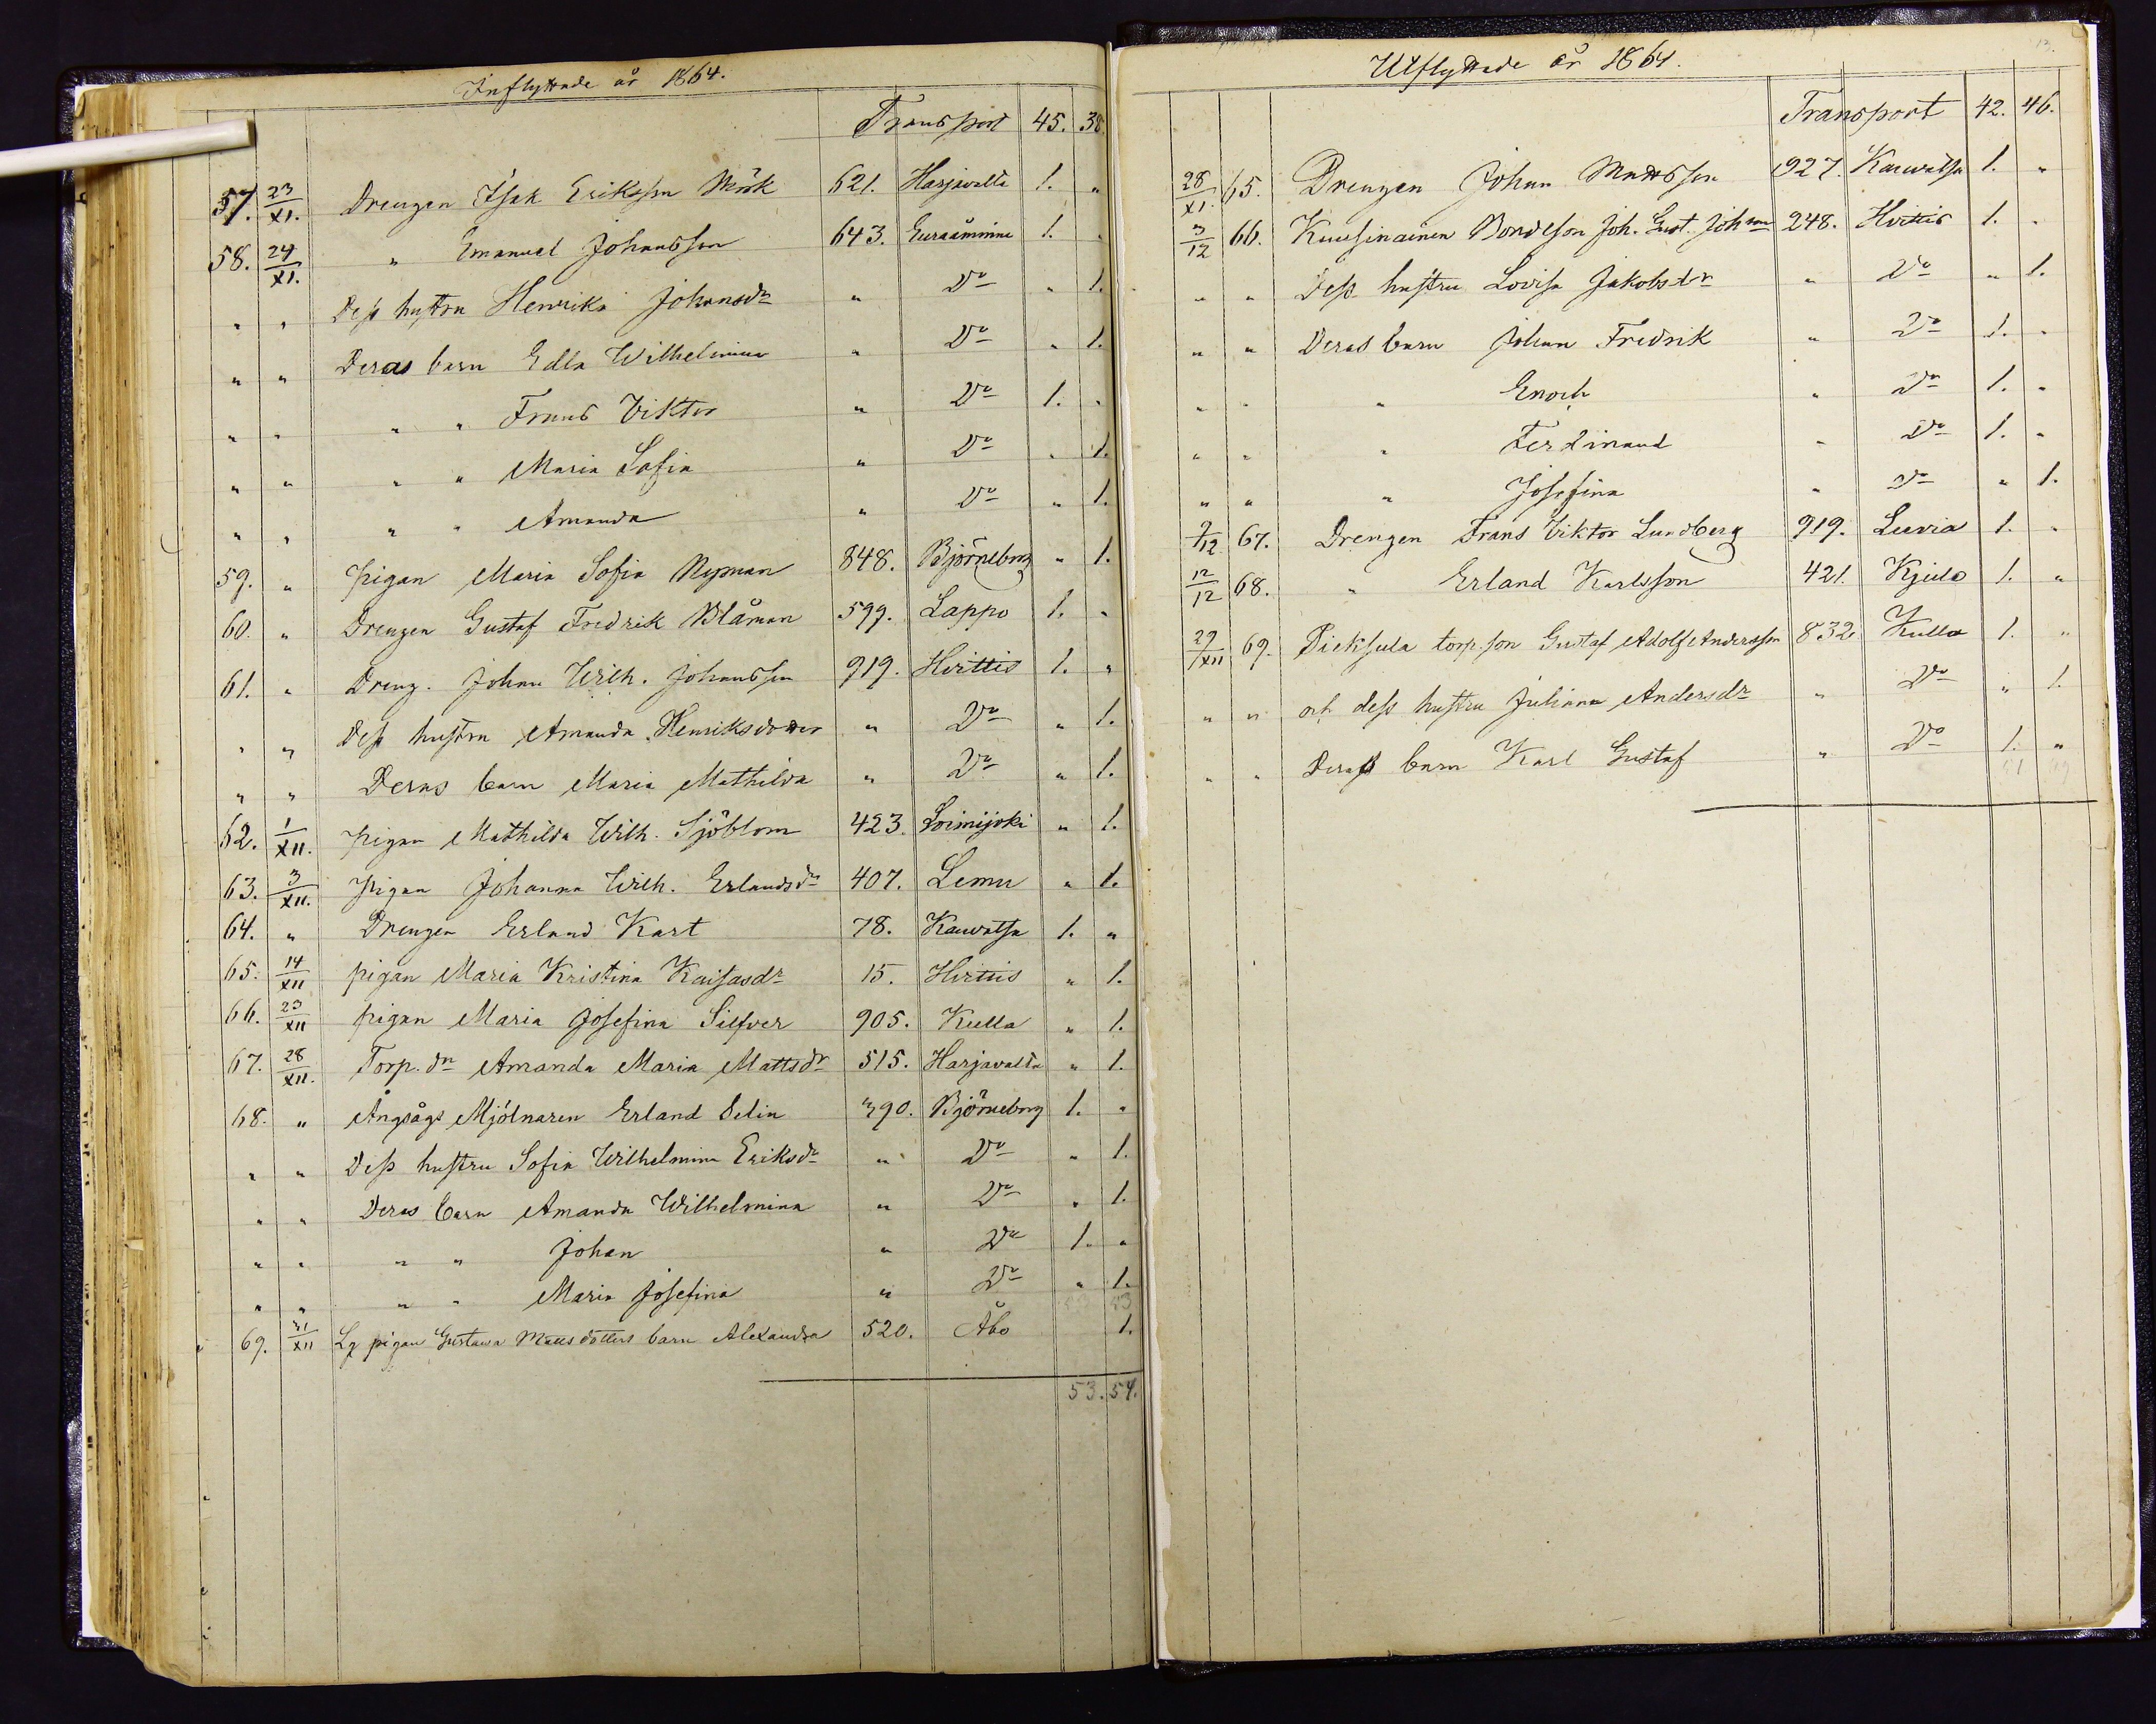 Inflyttade år 1864.
Transport 45. 38.
57. 23/XI. Drengen Isak Eriksson Mörk 621. Harjavalta 1. "
58. 24/XI. " Emanuel Johansson 643. Euraåminne 1. "
" " Dess hustru Henrika Johansdr " Do " 1.
" " Deras barn Edla Wilhelmina " Do " 1.
" " " " Frans Viktor " Do 1. "
" " " " Maria Sofia " Do " 1.
" " " " Amanda " Do " 1.
59. " pigan Maria Sofia Nyman 848. Björneborg " 1.
60. " Drengen Gustaf Fredrik Blåman 599. Lappo 1. "
61. " Dreng. Johan Wilh. Johansson 919. Hvittis 1. "
" " Dess hustru Amanda Henriksdotter " Do " 1.
" " Deras barn Maria Mathilda " Do " 1.
62. 1/XII. pigan Mathilda Wilh. Sjöblom 423. Loimijoki " 1.
63. 3/XII. pigan Johanna Wilh. Erlandsdr 407. Lemu " 1.
64. " Drengen Erland Kart 78. Kauvatsa 1. "
65. 14/XII pigan Maria Kristina Kaisasdr 15. Hvittis " 1.
66. 23/XII pigan Maria Josefina Silfver 905. Kulla " 1.
67. 28/XII. Torp. dr Amanda Maria Mattsdr 515. Harjavalta " 1.
68. " Ångsågs Mjölnaren Erland Selin 390. Björneborg 1. "
" " Dess hustru Sofia Wilhelmina Eriksdr " Do " 1.
" " Deras barn Amanda Wilhelmina " Do " 1.
" " " " Johan " Do 1. "
" " " " Maria Josefina " Do " 1.
69. 31/XII Lg pigan Gustava Mattsdotters barn Alexandra 520. Åbo 1.
53. 54.
Utflyttade år 1864.
13.
Transport 42. 46.
28/XI. 65. Drengen Johan Mattsson 927. Kauvatsa 1. "
3/12 66. Kuusinainen Bondeson Joh. Gust. Johsson 248. Hvittis 1. "
" " Dess hustru Lovisa Jakobsdr " Do " 1.
" " Deras barn Johan Fredrik " Do 1. "
" " " Enoch " Do 1. "
" " " Ferdinand " Do 1. "
" " " Josefina " Do " 1.
9/12 67. Drengen Frans Viktor Lundberg 919. Luvia 1. "
12/12 68. " Erland Karlsson 421. Kjulo 1. "
29/XII 69. Pieksula torp.son Gustaf Adolf Andersson 832. Kulla 1. "
" " och dess hustru Juliana Andersdr " Do " 1.
" " Deras barn Karl Gustaf " Do 1. "
51 49